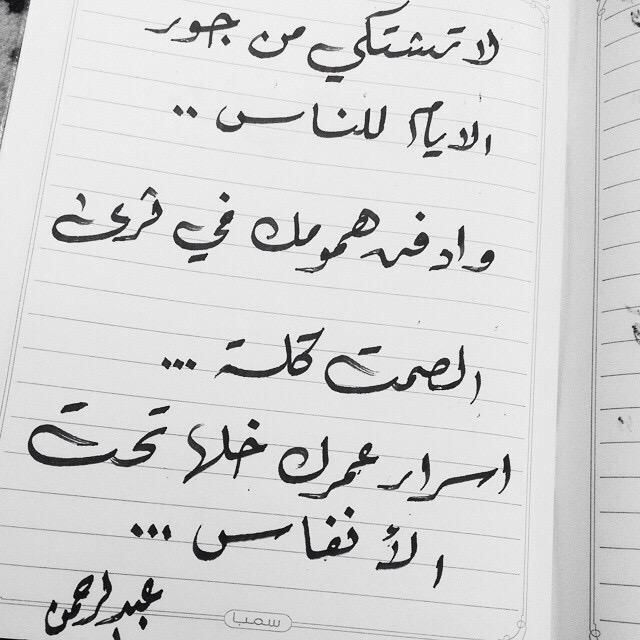 لا تشتكي من جور
الايام للناس ..
وادفن همومك في ثرى
الصمت كلة ...
اسرار عمرك خلها تحت
الأنفاس ...
عبدالرحمن
سمبا